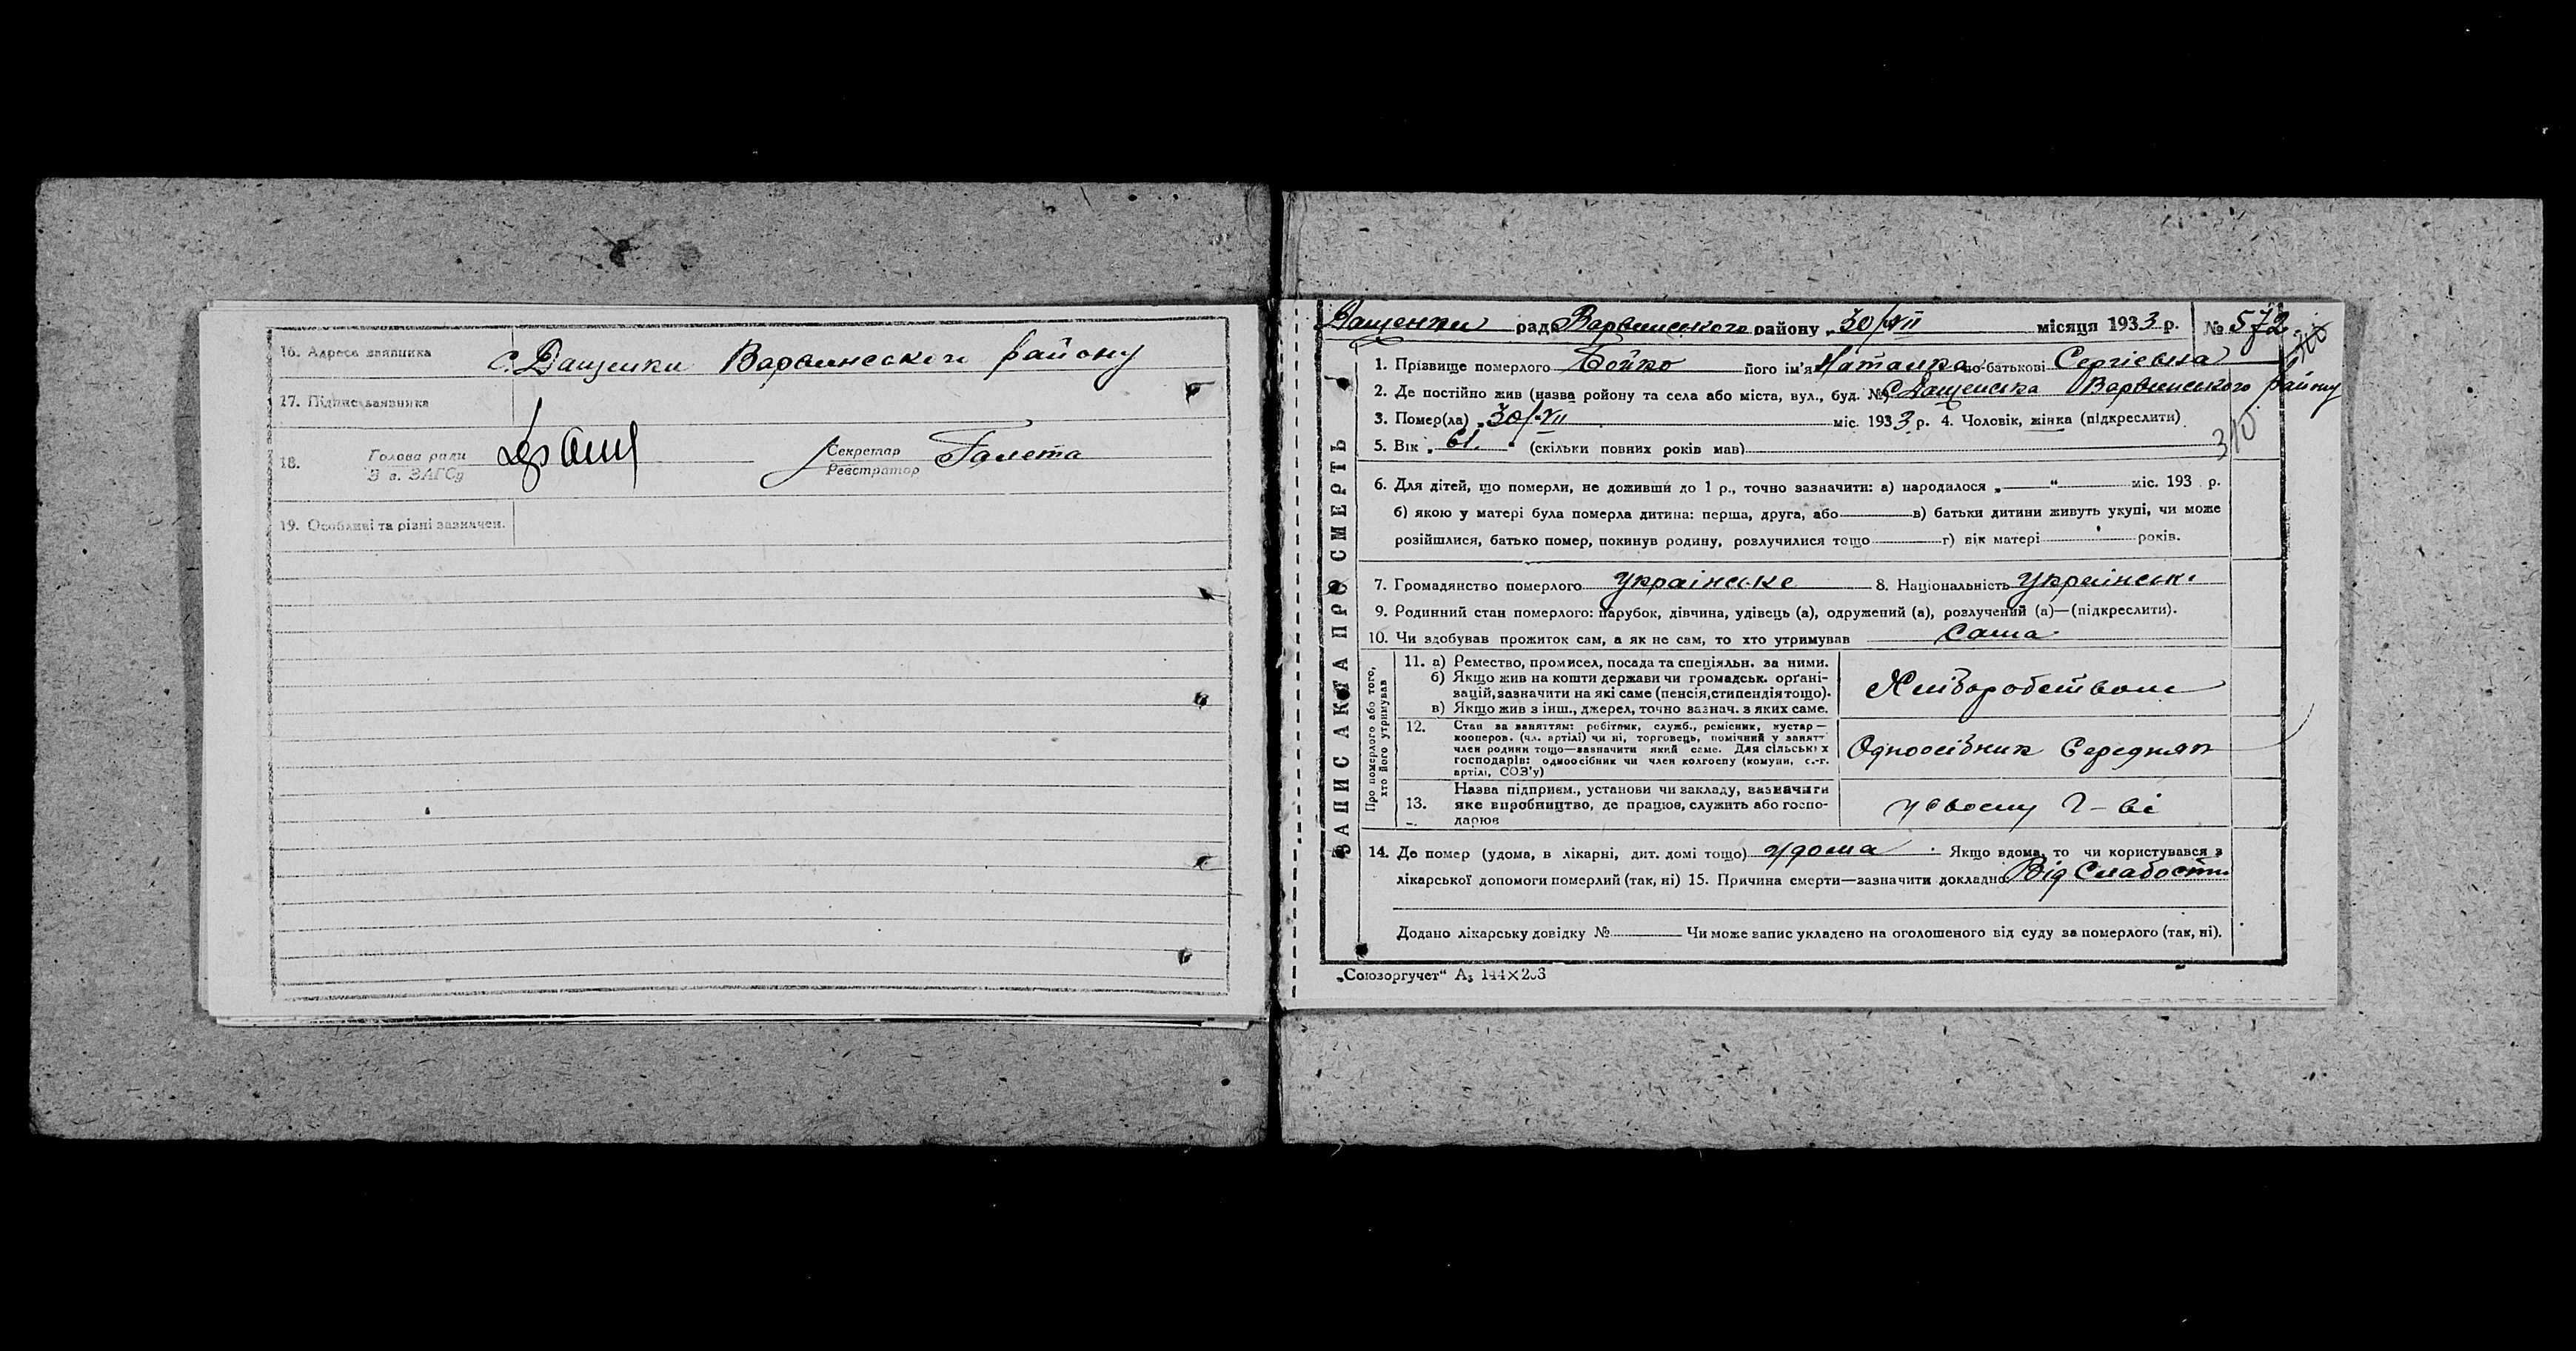 16. Адреса заявника с. Дащенки Варвинського району
17. Підпис заявника
18. Голова ради Секретар Галета
З а. ЗАГСу Реєстратор
19. Особливі та різні зазначен.
Дащенки рада Варвинського району „30/VII місяця 1933 р. № 572
ЗАПИС АКТА ПРО СМЕРТЬ
1. Прізвище померлого Бойко його ім'я Наталка по-батькові Сергієвна
2. Де постійно жив (назва району та села або міста, вул., буд. № С. Дащенська Варвинського району
3. Помер(ла) „30/VII міс. 1933 р. 4. Чоловік, жінка (підкреслити)
5. Вік „ 61. “ (скільки повних років мав)
310
6. Для дітей, що померли, не доживши до 1 р., точно зазначити: а) народилося „ “ міс. 193 р.
б) якою у матері була померла дитина: перша, друга, або в) батьки дитини живуть укупі, чи може
розійшлися, батько помер, покинув родину, розлучилися тощо г) вік матері років.
7. Громадянство померлого Українське 8. Національність Українськ
9. Родинний стан померлого: парубок, дівчина, удівець (а), одружений (а), розлучений (а)—(підкреслити).
10. Чи здобував прожиток сам, а як не сам, то хто утримував сама
Про померлого або того, хто його утримував
11. а) Ремество, промисел, посада та спеціяльн. за ними.
б) Якщо жив на кошти держави чи громадськ. орґані-
зацій, зазначити на які саме (пенсія, стипендія тощо).
в) Якщо жив з інш., джерел, точно зазнач. з яких саме.
Хліборобством
12. Стан за заняттям: робітник, служб., ремісник, кустар—
кооперов. (чл. артілі) чи ні, торговець, помічний у занятт
член родини тощо—зазначити який саме. Для сільських
господарів: одноосібник чи член колгоспу (комуни, с.-г.
артілі, СОЗ'у)
Одноосібник Середняк
13. Назва підприєм., установи чи закладу, зазначити
яке виробництво, де працює, служить або госпо-
дарює
у своєму г-ві
14. Де помер (удома, в лікарні, дит. домі тощо) удома Якщо вдома, то чи користувався з
лікарської допомоги померлий (так, ні) 15. Причина смерти—зазначити докладно Від Слабости
Додано лікарську довідку № Чи може запис укладено на оголошеного від суду за померлого (так, ні).
„Союзоргучет“ А₅ 144×203